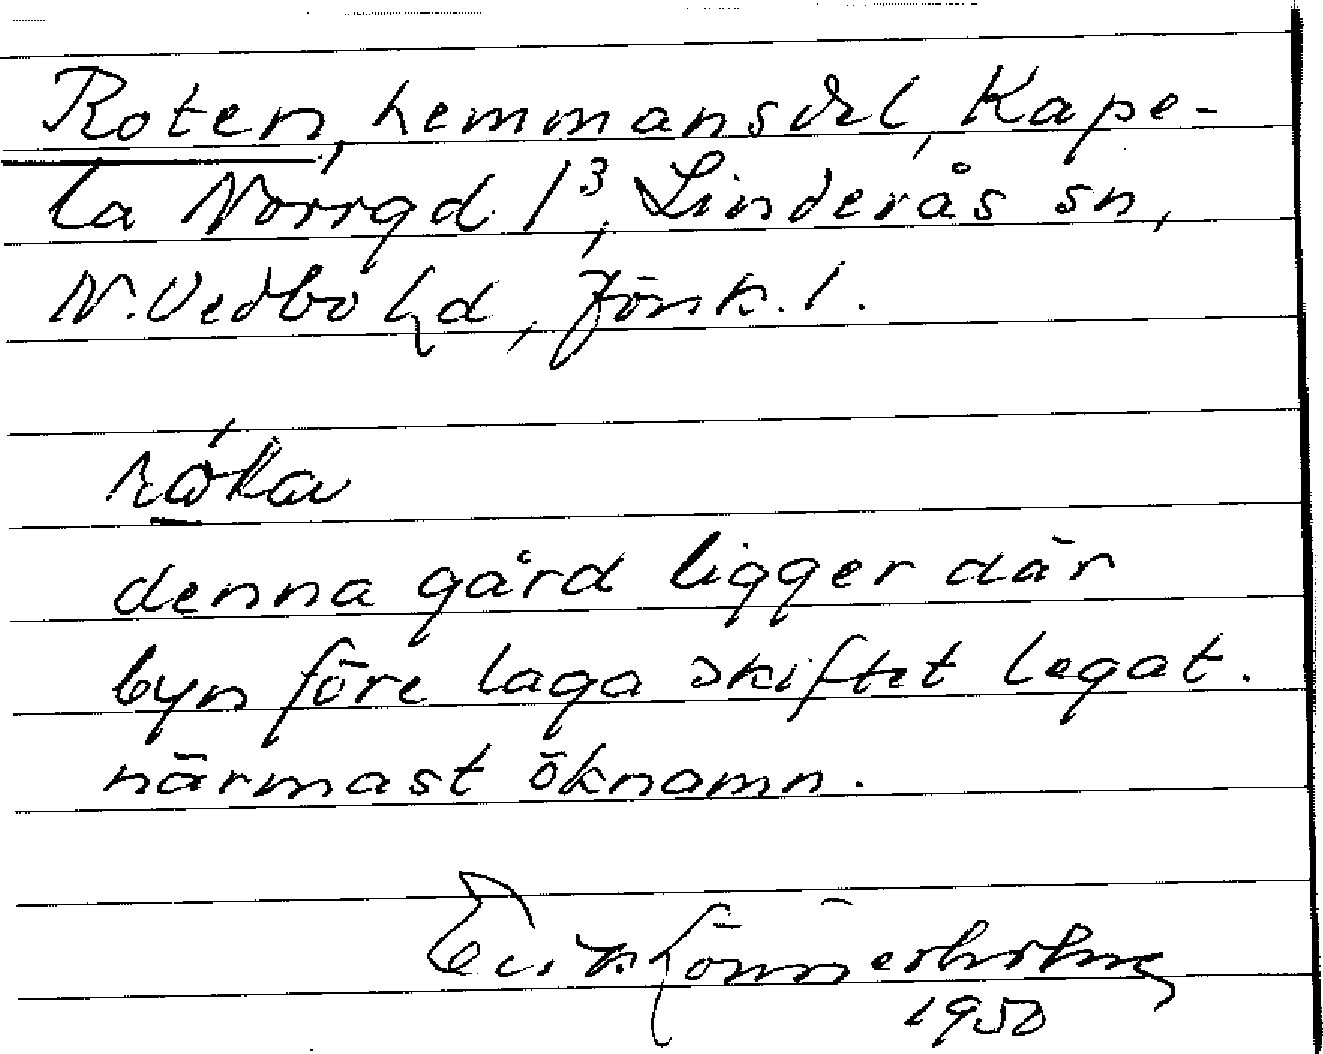 Roten, hemmansdel, Kape-
la Norrgd 1³, Linderås sn,
N. Vedbo hd, Jönk. l.
denna gård ligger där
byn före laga skiftet legat.
närmast öknamn.
1950